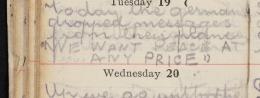 Tuesday 19
Today the Germans
dropped messages
from their planes
"WE WANT PEACE AT
ANY PRICE"
Wednesday 20